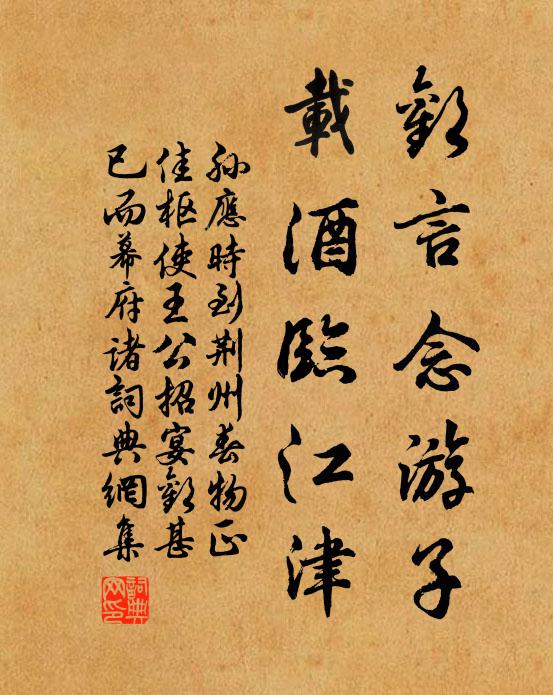 歡言念游子
載酒臨江津
孫應時到荆州春物正
佳枢使王公招宴歡甚
已而幕府諸詞典網集
詞典网印